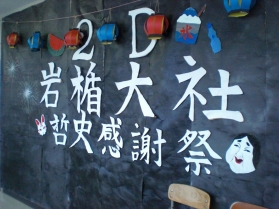 2D
岩楯大社
哲史感謝祭
氷